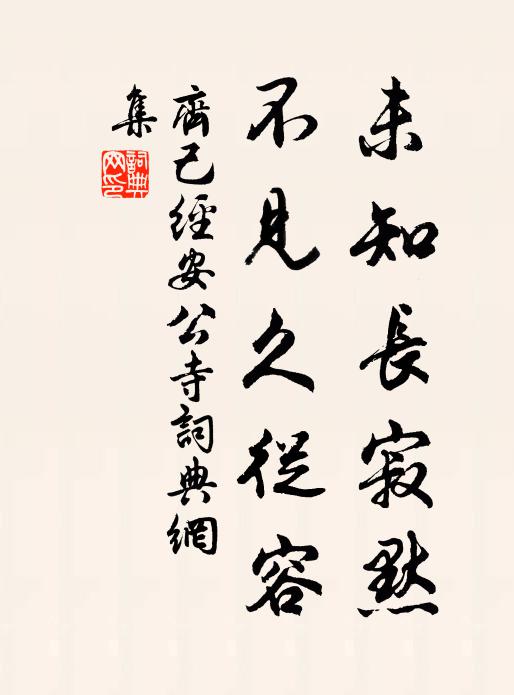 未知長寂默
不見久從容
齊己經安公寺詞典網
集
詞典网印